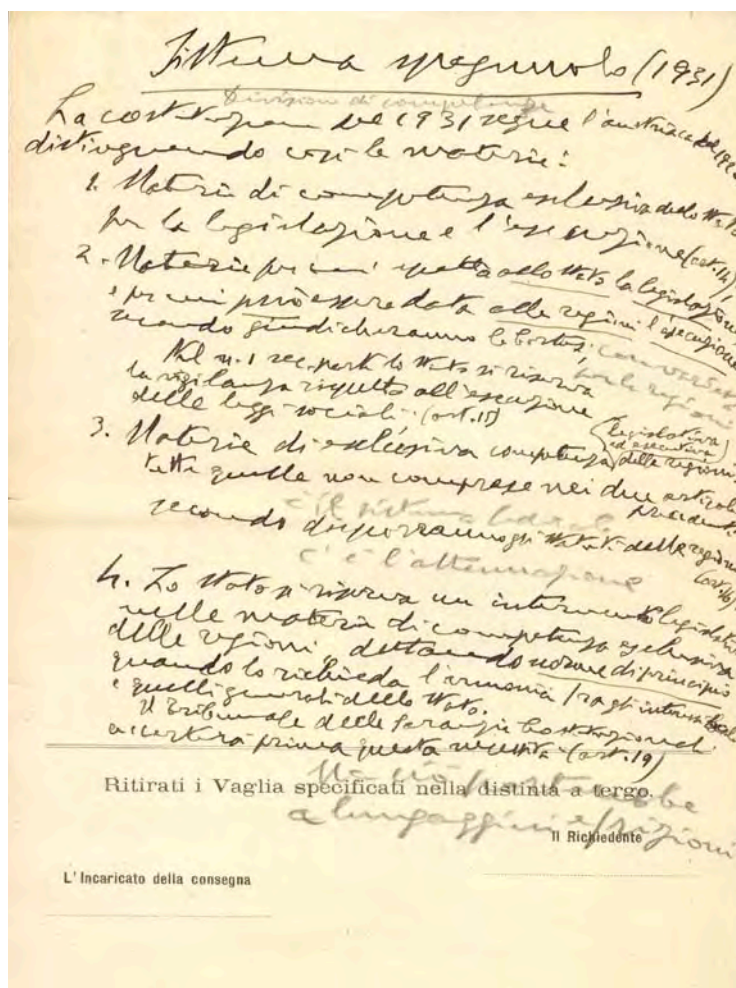 Sistema spagnuolo (1931)
Divisione di competenze
La costituzione del 1931 segue l'austriaca del
distinguendo così le materie:
1. Materie di competenza esclusiva dello Stato
per la legislazione e l'esecuzione (art. 14)
2. Materie per cui spetta allo Stato la legislazione
e per cui può essere data alle regioni l'esecuzione
secondo giudicheranno le Cortes.
per le regioni
Nel n. 1 lo Stato si riserva
la vigilanza rispetto all'esecuzione
delle leggi sociali. (art. 15)
3. Materie di esclusiva competenza (legislativa
ed esecutiva) delle regioni:
tutte quelle non comprese nei due articoli
precedenti
c'è il sistema federale
secondo disporranno gli statuti delle regioni
(art. 16)
c'è l'attenuazione
4. Lo Stato si riserva un intervento legislativo
nelle materie di competenza esclusiva
delle regioni, dettando norme di principio
quando lo richieda l'armonia fra gli interessi locali
e quelli generali dello Stato.
Il Tribunale delle Garanzie Costituzionali
accerterà prima questa necessità (art. 19)
Ritirati i Vaglia specificati nella distinta a tergo.
Ma ciò porterebbe
a lungaggini e frizioni
Il Richiedente
L'Incaricato della consegna